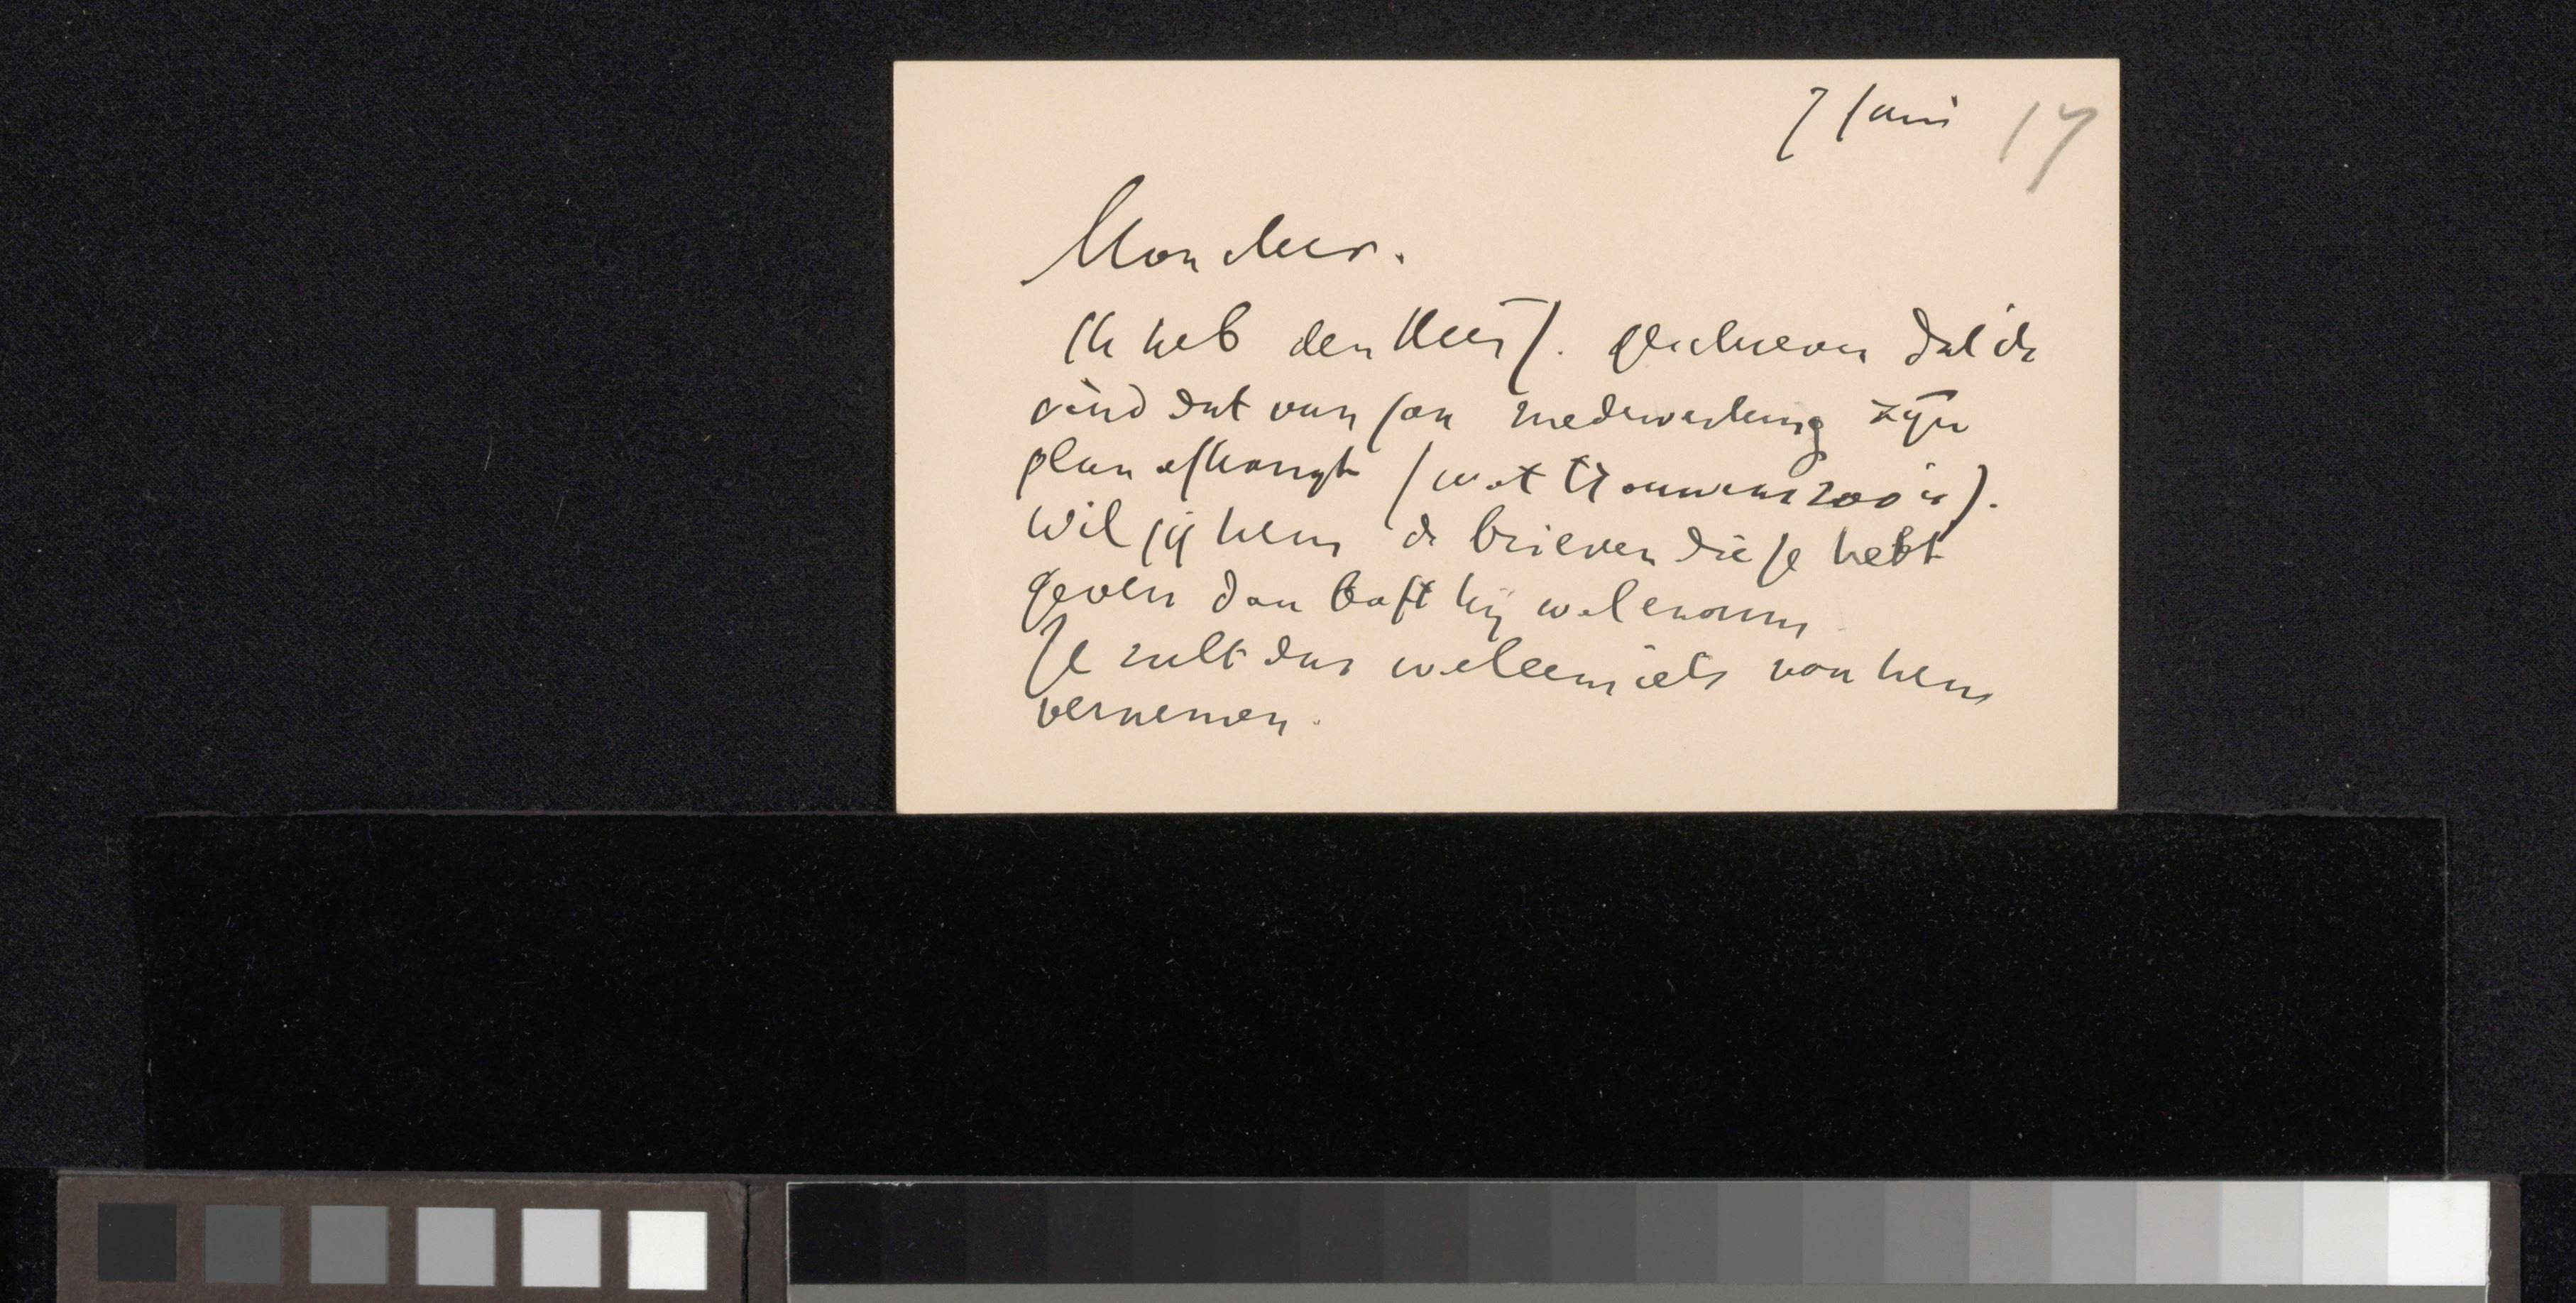 7 Juni 17
Mon cher.
Ik heb den Heer J. geschreven dat ik
vind dat van jou medewerking zijn
plan afhangt (wat trouwens zoo is).
Wil jij hem de brieven die je hebt
geven dan boft hij wel enorm
Je zult dus wel eens iets van hem
vernemen.